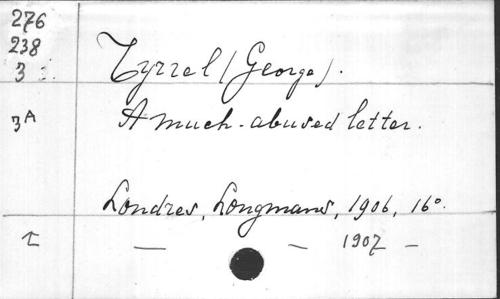 276
238
3
Tyrrel (George).
3A
A much-abused letter.
Londres, Longmans, 1906, 16°.
— — 1907 —